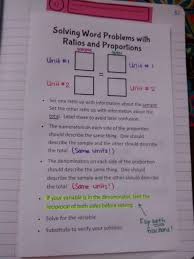 Solving Word Problems with
Ratios and Proportions
Unit #1
Unit #1
=
Unit #2
Unit #2
• Set one ratio up with information about the sample.
Set the other ratio up with information about the
total. Label these to avoid later confusion.
• The numerators on each side of the proportion
should describe the same thing. One should
describe the sample and the other should describe
the total. (Same units!)
• The denominators on each side of the proportion
should describe the same thing. One should
describe the sample and the other should describe
the total. (Same units!)
• If your variable is in the denominator, take the
reciprocal of both sides before solving.
• Solve for the variable.
• Substitute to verify your solution.
Flip both
fractions!